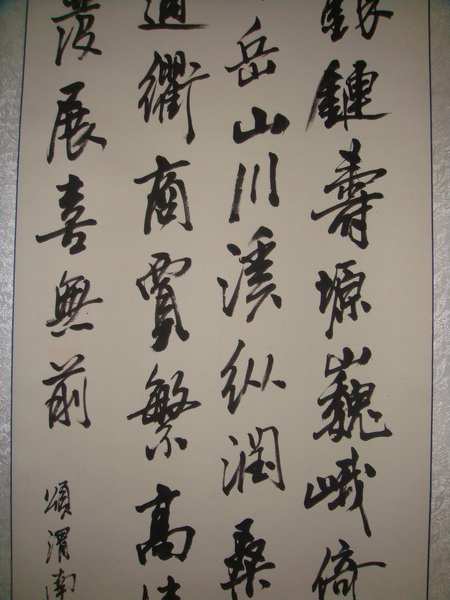 鏈壽塬巍峨倚
岳山川溪纵润桑
通衢商賈繁高
展喜無前
頌渭南